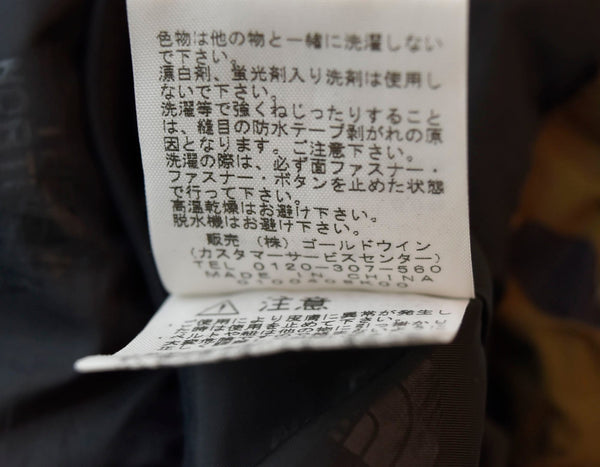 色物は他の物と一緒に洗濯しない
で下さい。
漂白剤、蛍光剤入り洗剤は使用し
ないで下さい。
洗濯等で強くねじったりすること
は、縫目の防水テープ剥がれの原
因となります。ご注意下さい。
洗濯の際は、必ず面ファスナー・
ファスナー・ボタンを止めた状態
で行って下さい。
高温乾燥はお避け下さい。
脱水機はお避け下さい。
販売 (株) ゴールドウイン
(カスタマーサービスセンター)
TEL 0120-307-560
MADE IN CHINA
注意
使用により皮膚に異常が発生し
は使用を止めて下さい。
は他の物に引っ掛かっ
NORTH